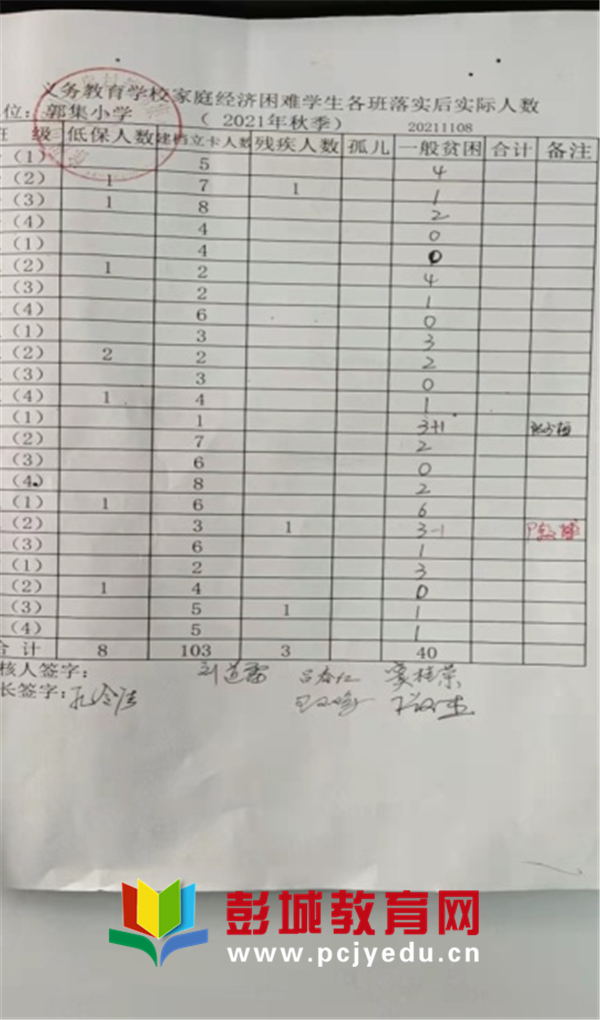 义务教育学校家庭经济困难学生各班落实后实际人数
位：郭集小学 （ 2021年秋季） 20211108
班 级 低保人数 建档立卡人数 残疾人数 孤儿 一般贫困 合计 备注
（1） 5 4
（2） 1 7 1 1
（3） 1 8 2
（4） 4 0
（1） 4 0
（2） 1 2 4
（3） 2 1
（4） 6 0
（1） 3 3
（2） 2 2 2
（3） 3 0
（4） 1 4 1
（1） 1 3+1
（2） 7 2
（3） 6 0
（4） 8 2
（1） 1 6 6
（2） 3 1 3-1
（3） 6 1
（1） 2 3
（2） 1 4 0
（3） 5 1 1
（4） 5 1
合 计 8 103 3 40
核人签字： 刘道雷
长签字：
彭城教育网
www.pcjyedu.cn